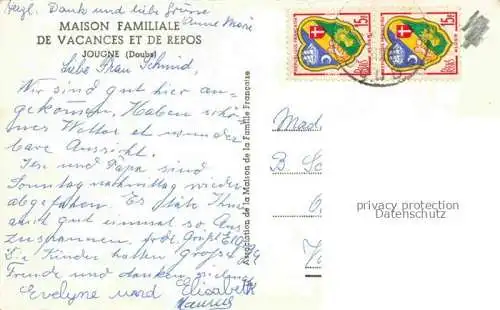 Herzl. Dank und liebe Grüsse
Anne Marie
MAISON FAMILIALE
DE VACANCES ET DE REPOS
JOUGNE (Doubs)
Liebe Frau Schmid,
Wir sind gut hier an-
gekommen. Haben schö-
nes Wetter et wunder
bare Aussicht.
Jean und Papa sind
Sonntag nachmittag wieder
abgefahren. Es täte Ihnen
auch gut einmal so Aus
zuspannen. frdl. Grüße
Die Kinder hatten große
Freude und danken vielmals
Evelyne und Elisabeth
Association de la Maison de la Famille Française
Mad
B Sc
Protection Datenschutz